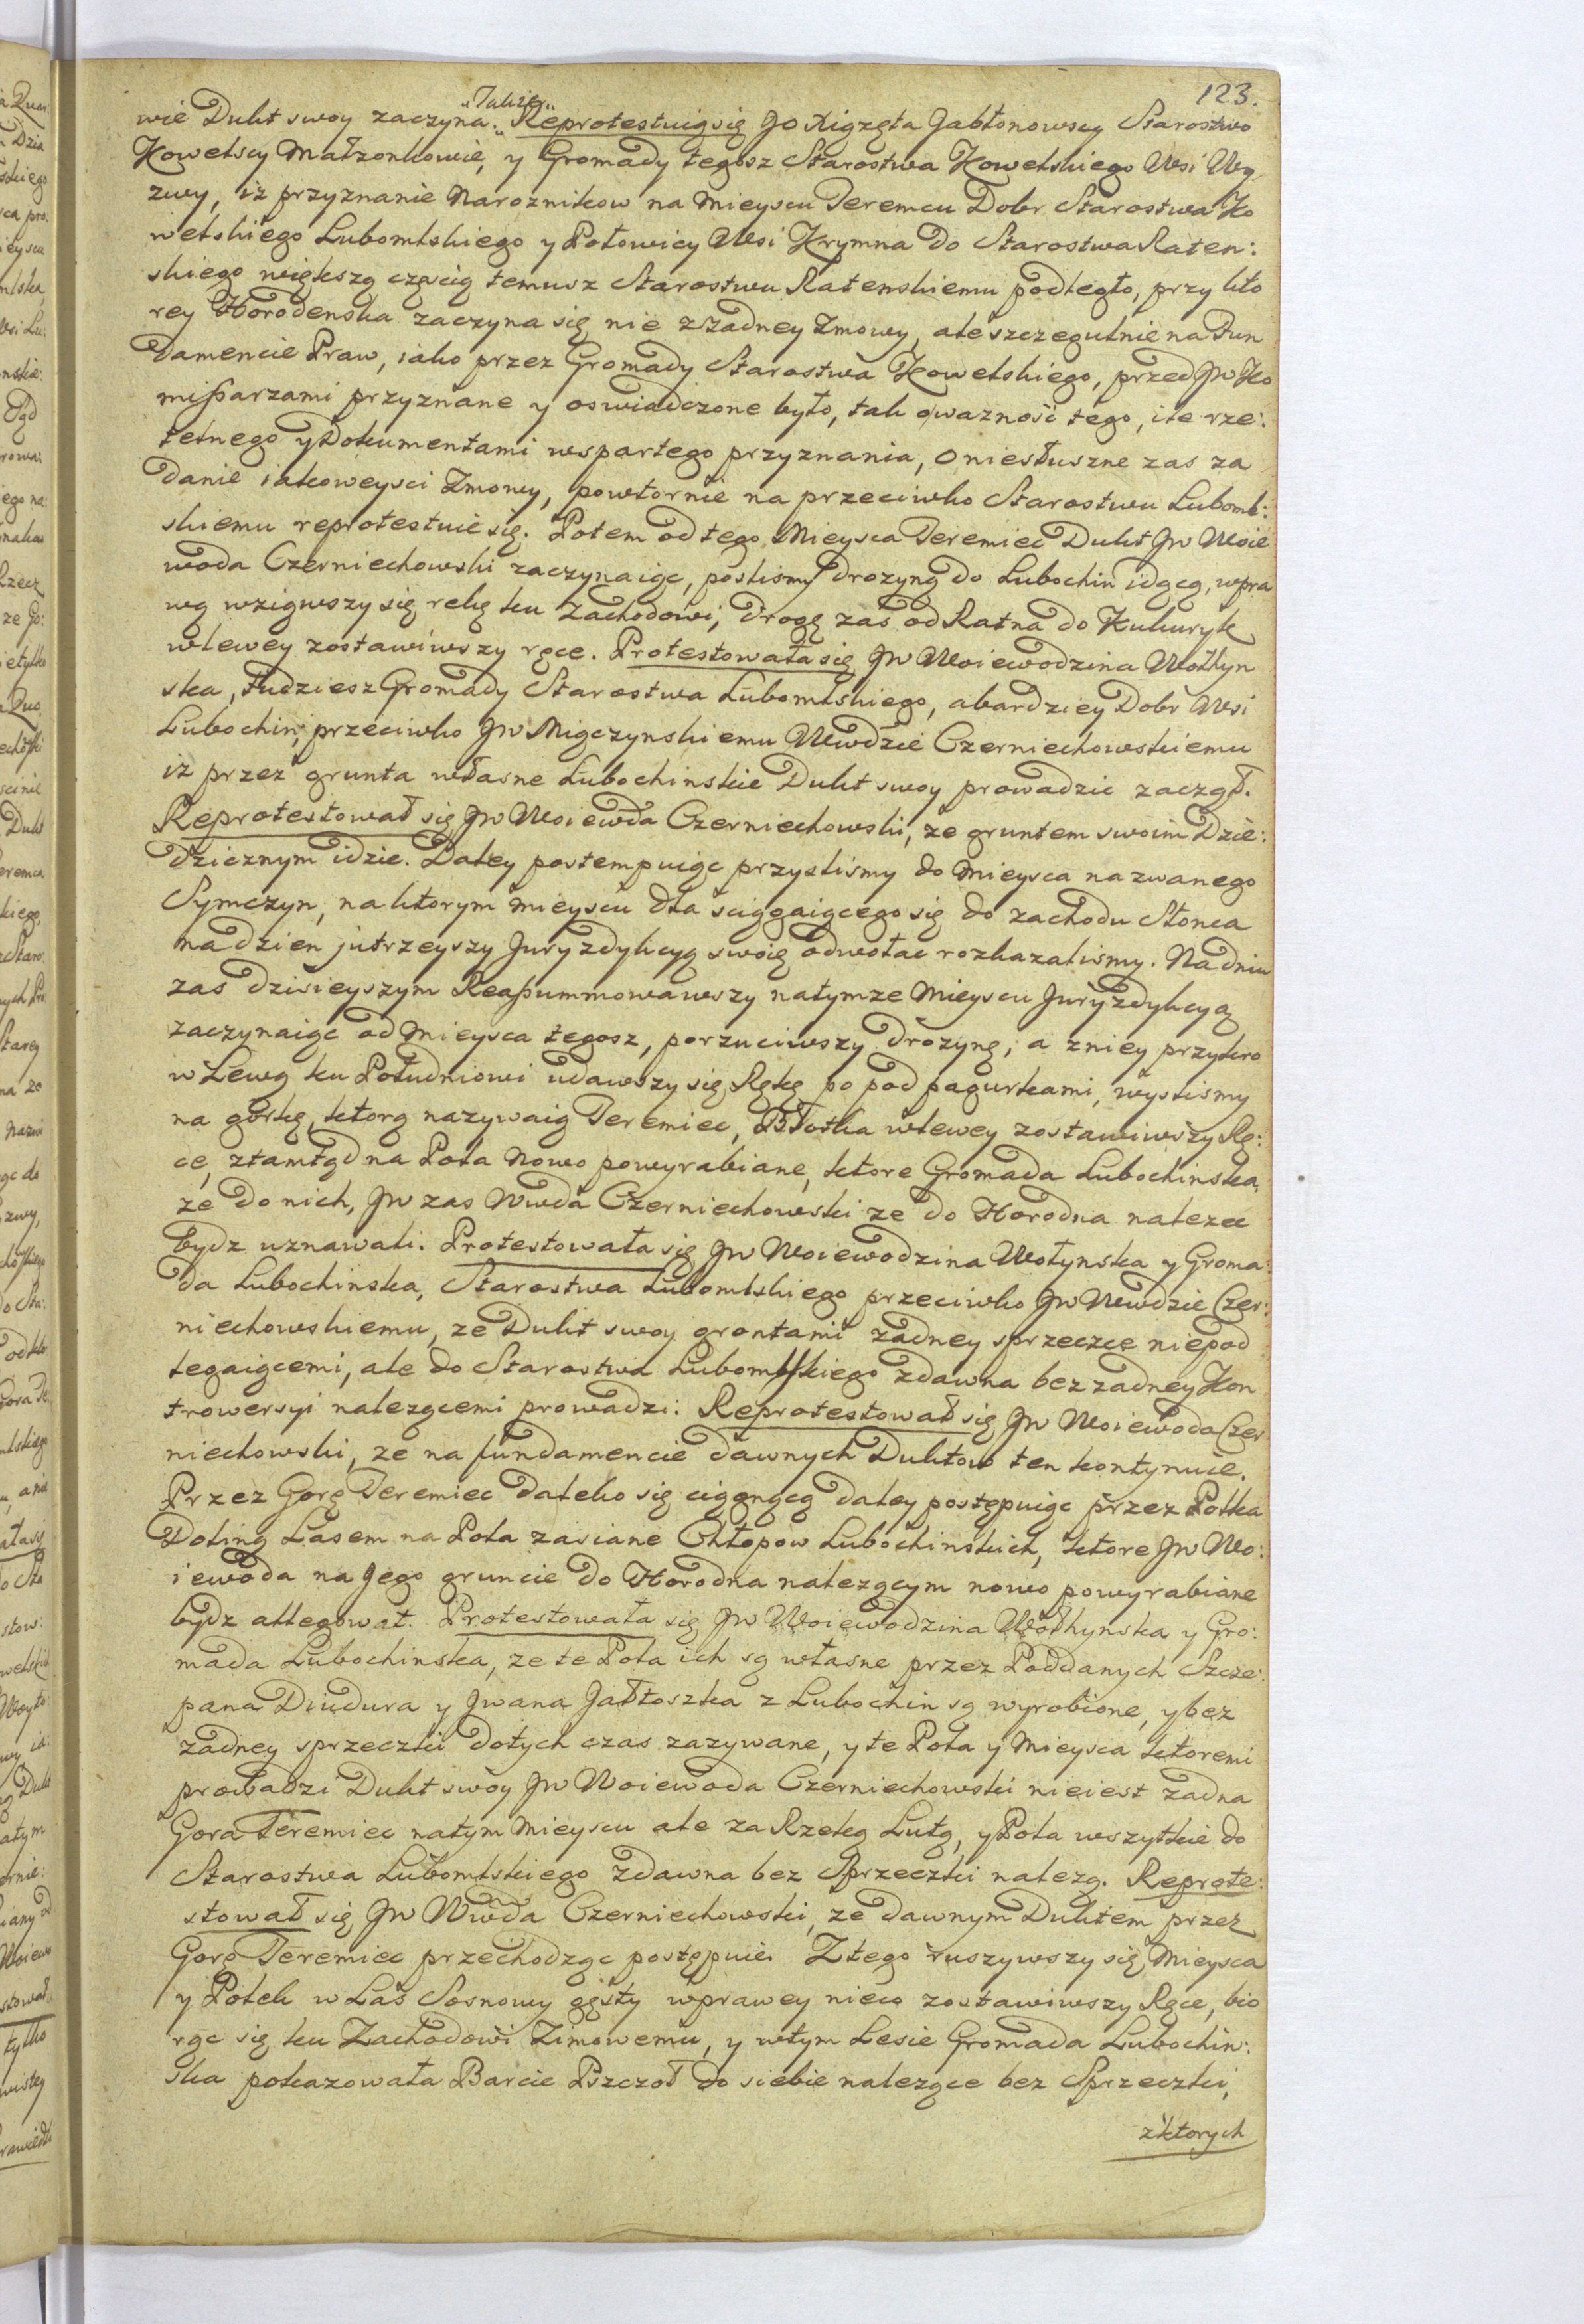 123.
"Takze"
wie Dukt swoy zaczyna. "Reprotestuią się JO Xiązęta Jabłonowscy Starostwo
Kowelscy Małzonkowie, y Gromady tegosz Starostwa Kowelskiego Wsi Wy
zwy, iz przyznanie Naroznikow na Mieyscu Teremcu Dobr Starostwa Ko
welskiego Lubomlskiego y Połowicy Wsi Krymna do Starostwa Raten:
skiego większą częscią temusz Starostwu Ratenskiemu podległo, przy kto
rey Horodenska zaczyna się nie z zadney Zmowy, ale szczegulnie na Fun
damencie Praw, iako przez Gromady Starostwa Kowelskiego, przed JW Ko
mißarzami przyznane y oswiadczone było, tak o waznośc tego, ile rze:
telnego y Dokumentami wspartego przyznania, o niesłuszne zas za
danie iakoweysci Zmowy, powtornie na przeciwko Starostwu Luboml:
skiemu reprotestuie się. Potem od tego Mieysca Teremiec Dukt JW Woie
woda Czerniechowski zaczynaiąc, poslismy drozyną do Lubochin idącą, w pra
wą wziąwszy się rękę ku Zachodowi, drogę zas od Ratna do Kukuryk
w lewey zostawiwszy ręce. Protestowała się JW Woiewodzina Wołhyn
ska, tudziesz Gromady Starostwa Lubomlskiego, a bardziey Dobr Wsi
Lubochin, przeciwko JW Miączynskiemu Wwdzie Czerniechowskiemu
iz przez grunta własne Lubochinskie Dukt swoy prowadzic zaczął.
Reprotestował się JW Woiewda Czerniechowski, ze gruntem swoim Dzie:
dzicznym idzie. Daley postempuiąc przyslismy do Mieysca nazwanego
Symczyn, na ktorym Mieyscu dla sciągaiącego się do zachodu Słonca
na dzien jutrzeyszy Juryzdykcyą swoię odwołac rozkazalismy. Na dniu
zas dzisieyszym Reaßummowawszy na tymze Mieyscu Juryzdykcyą
zaczynaiąc od Mieysca tegosz, porzuciwszy drozynę, a z niey przykro
w Lewą ku Południowi udawszy się Rękę po pod pagurkami, wyslismy
na gorkę, ktorą nazywaią Teremiec, Błotka w lewey zostawiwszy Rę:
ce, ztamtąd na Pola Nowo powyrabiane, ktore Gromada Lubochinska,
ze do nich, JW zas Wwda Czerniechowski ze do Horodna nalezec
bydz uznawali. Protestowała się JW Woiewodzina Wołynska y Groma:
da Lubochinska, Starostwa Lubomlskiego przeciwko JW Wwdzie Czer:
niechowskiemu, ze Dukt swoy grontami zadney sprzeczce niepod
legaiącemi, ale do Starostwa Lubomlskiego zdawna bez zadney Kon
trowersyi nalezącemi prowadzi. Reprotestował się JW Woiewoda Czer
niechowski, ze na fundamencie dawnych Duktow ten kontynuie.
Przez Gorę Teremiec daleko się ciągnącą daley postępuiąc przez Polka
Doliną Lasem na Pola zasiane Chłopow Lubochinskich, ktore JW Wo:
iewoda na Jego gruncie do Horodna nalezącym nowo powyrabiane
bydz allegował. Protestowała się JW Woiewodzina Wołhynska y Gro:
mada Lubochinska, ze te Pola ich są własne przez Poddanych Szcze:
pana Diudura y Jwana Jałtoszka z Lubochin są wyrobione, y bez
zadney sprzeczki dotych czas zazywane, y te Pola y Mieysca ktoremi
prowadzi Dukt swoy JW Woiewoda Czerniechowski nieiest zadna
Gora Teremiec na tym Mieyscu ale za Rzeką Lutą, y Pola wszytkie do
Starostwa Lubomlskiego zdawna bez Sprzeczki nalezą. Reprote:
stował się JW Wwda Czerniechowski, ze dawnym Duktem przez
Gorę Teremiec przechodząc postępuie. Z tego ruszywszy się Mieysca
y Polek w Las Sosnowy gęsty w prawey nieco zostawiwszy Ręce, bio
rąc się ku Zachodowi Zimowemu, y w tym Lesie Gromada Lubochin:
ska pokazowała Barcie Pszczoł do siebie nalezące bez Sprzeczki,
z ktorych